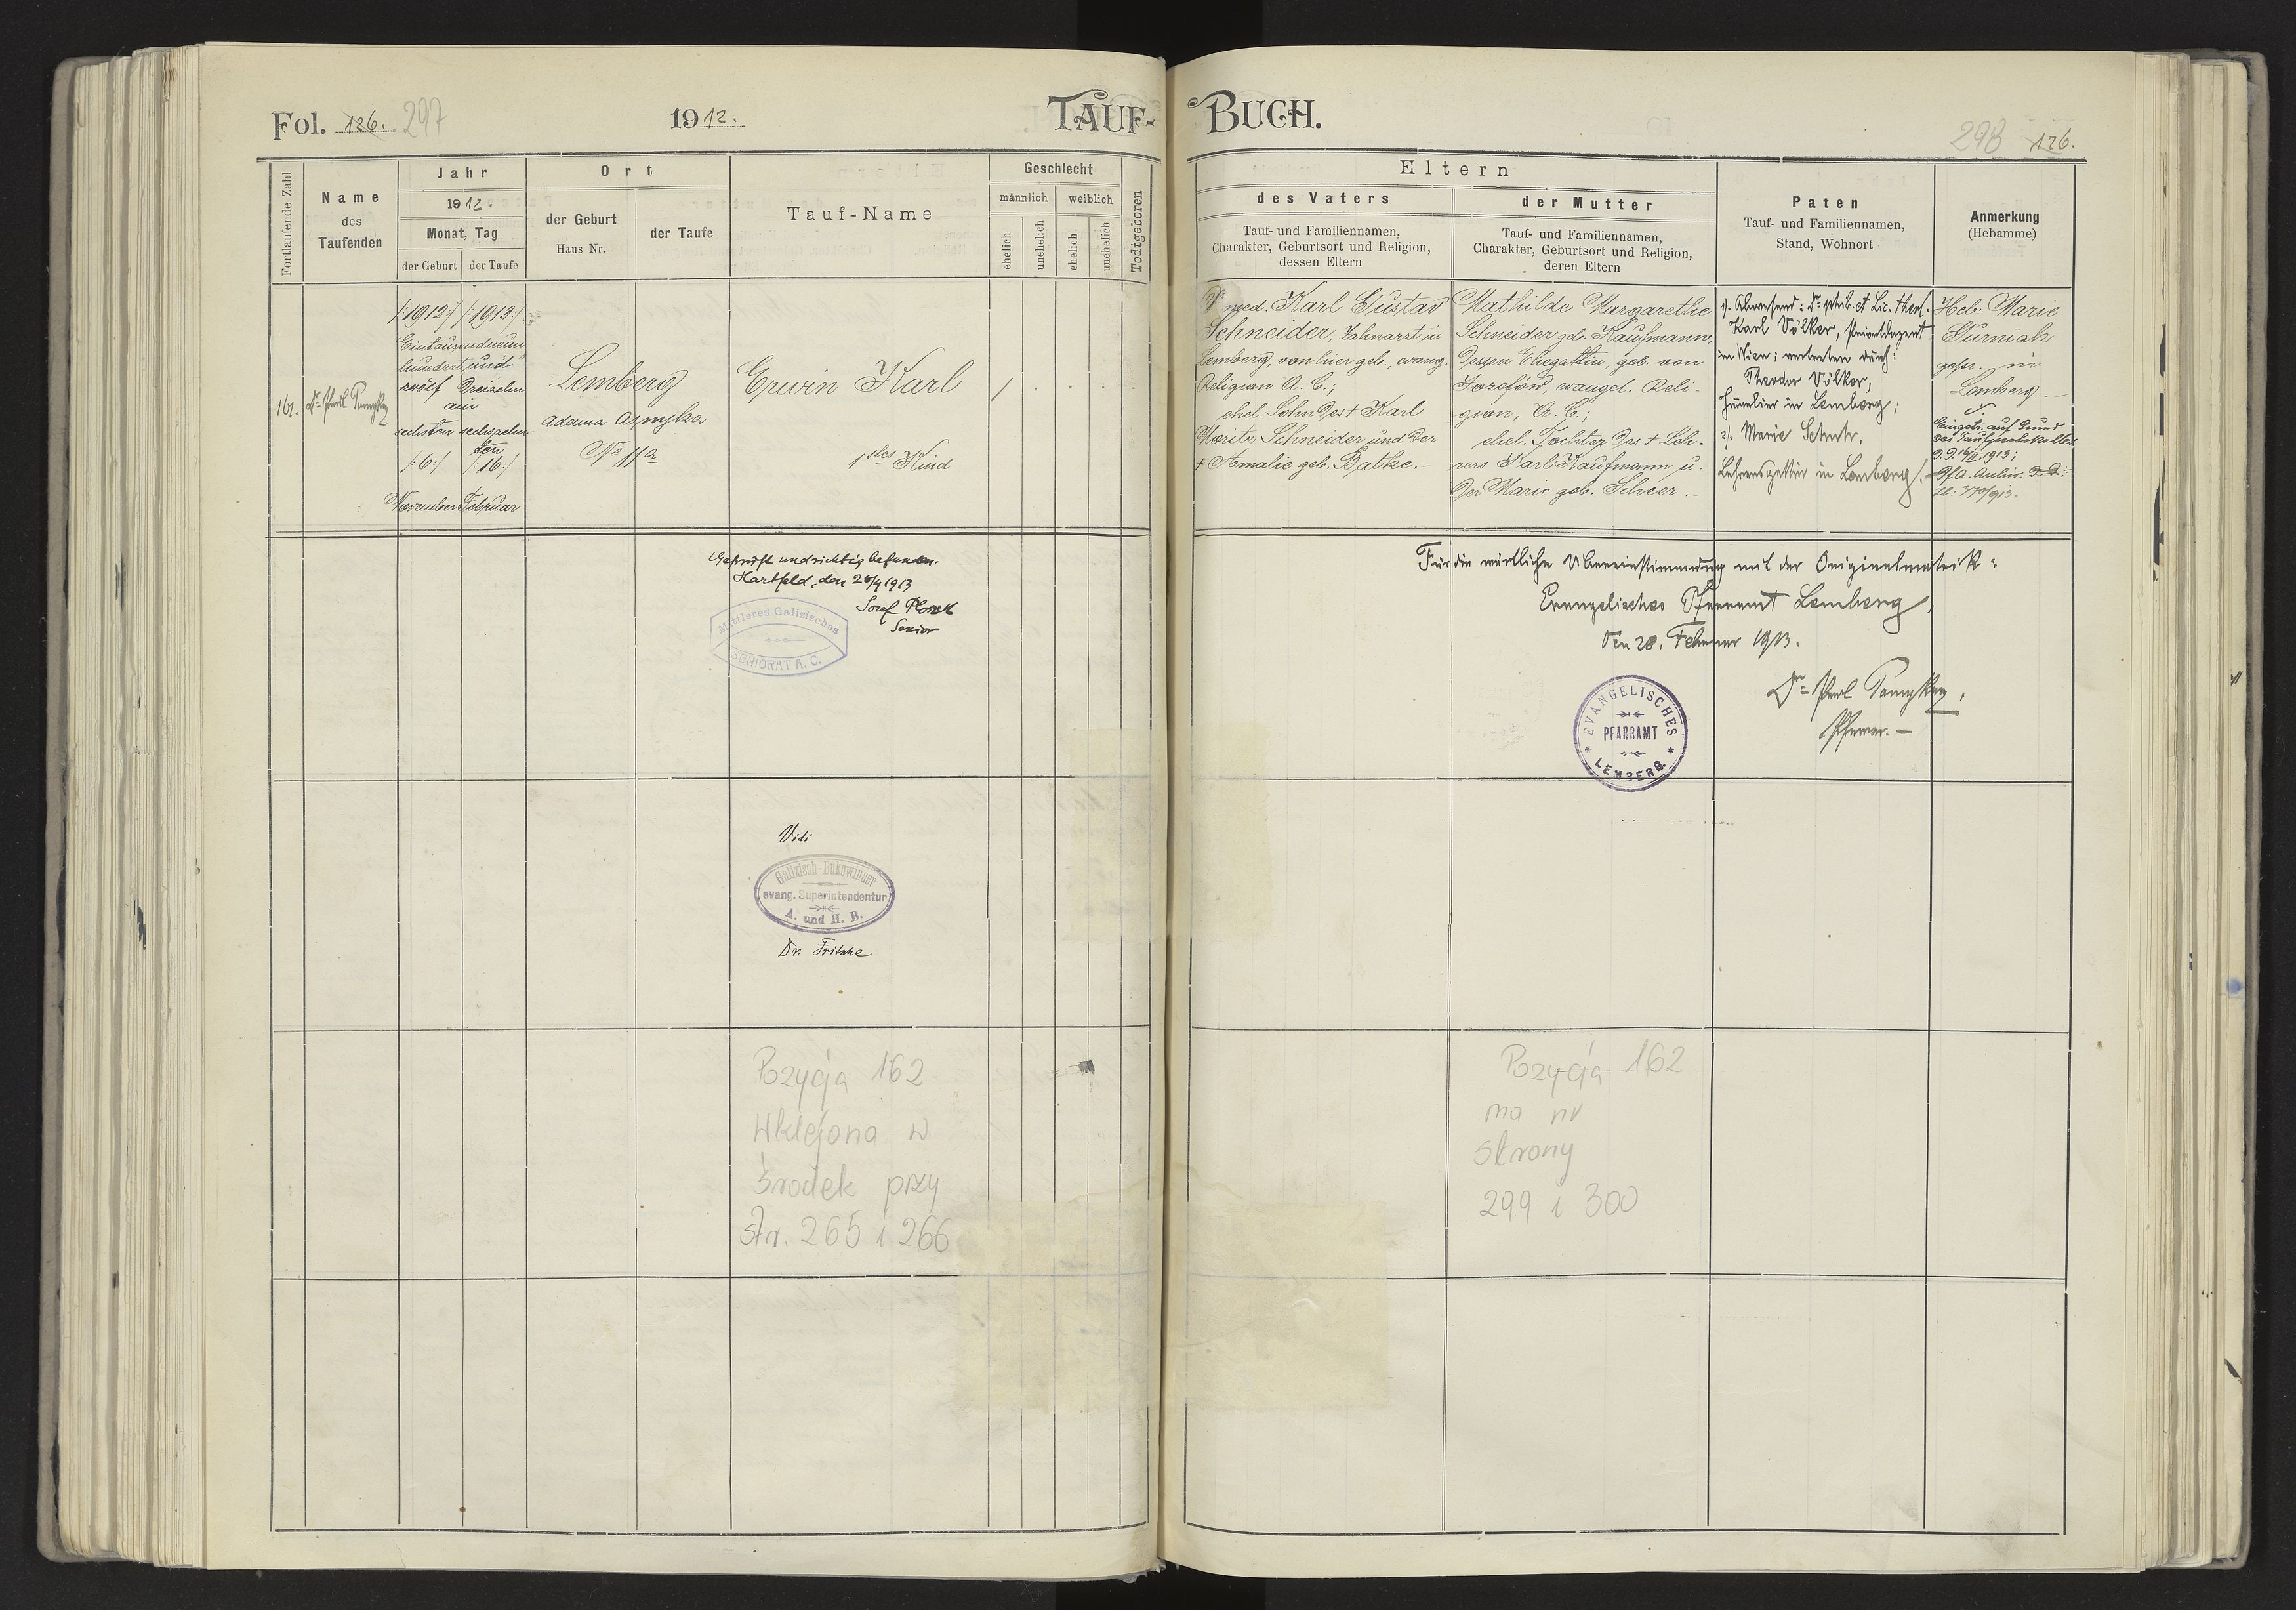 Fol. 126. 297
1912.
TAUF-
BUCH.
298 126.
Fortlaufende Zahl
Name
des
Taufenden
Jahr
1912.
Monat, Tag
der Geburt
der Taufe
Ort
der Geburt
Haus Nr.
der Taufe
Tauf-Name
Geschlecht
männlich
weiblich
ehelich
unehelich
ehelich
unehelich
Todtgeboren
Eltern
des Vaters
Tauf- und Familiennamen,
Charakter, Geburtsort und Religion,
dessen Eltern
der Mutter
Tauf- und Familiennamen,
Charakter, Geburtsort und Religion,
deren Eltern
Paten
Tauf- und Familiennamen,
Stand, Wohnort
Anmerkung
(Hebamme)
161.
Dr. Paul
/:1912:/ /:1913:/
Eintausendneun
hundert und
zwölf Dreizehn
am
sechsten sechszehn
ten
/:6:/ /:16:/
November Februar
Lemberg
Adama Asnyka
No 11a
Erwin Karl
1stes Kind
/
Dr med. Karl Gustav
Schneider, Zahnarzt in
Lemberg, von hier geb., evang.
Religion A. C.;
ehel. Sohn des † Karl
Moritz Schneider und der
† Amalie geb. Batke.-
Mathilde Margarethe
Schneider geb. Kaufmann,
dessen Ehegattin, geb. von
Jozefów, evangel. Reli-
gion, A. C.;
ehel. Tochter des † Leh-
rers Karl Kaufmann u.
der Marie geb. Scheer.-
1). Abwesend: Dr. phil. et Lic. theol.
Karl Völker, Privatdozent
in Wien; vertreten durch:
Theodor Völker,
Juwelier in Lemberg;
2). Marie
Lehrersgattin in Lemberg.
Heb: Marie
Gurniak
gepr. in
Lemberg.-
Eingetr. auf Grund
des Taufprotokolles
d. d. 16/II. 1913;
Zl: 370/913.
Geprüft und richtig befunden.
Hartfeld, den 28/4 1913
Josef
Senior
Mittleres Galizisches
SENIORAT A. C.
Für die wörtliche Übereinstimmung mit der Originalmatrik:
Evangelisches Pfarramt Lemberg,
den 28. Februar 1913.
Dr. Paul
Pfarrer.-
EVANGELISCHES
PFARRAMT
LEMBERG.
Vidi
Galizisch-Bukowinaer
evang. Superintendentur
A. und H. B.
Dr. Fritsche
Pozycja 162
wklejona w
środek przy
str. 265 i 266
Pozycja 162
ma nr
strony
299 i 300